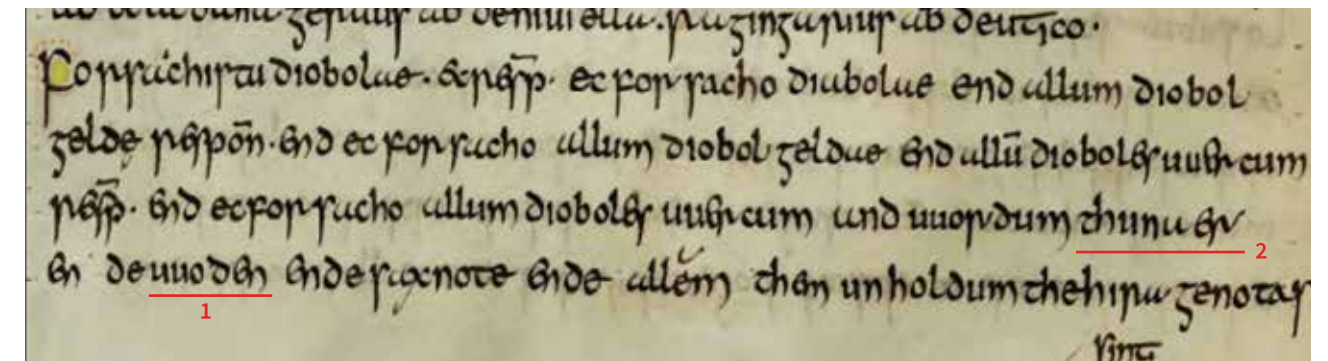 Forsachistu diobolae. & resp̄. ec forsacho diabolae end allum diobol
gelde respon̄. end ec forsacho allum diobolgeldae end allū dioboles uuercum
resp̄. end ec forsacho allum dioboles uuercum and uuordum thunaer 2
en de uuoden ende saxnote ende allēm them unholdum thehira genotas
1
sint